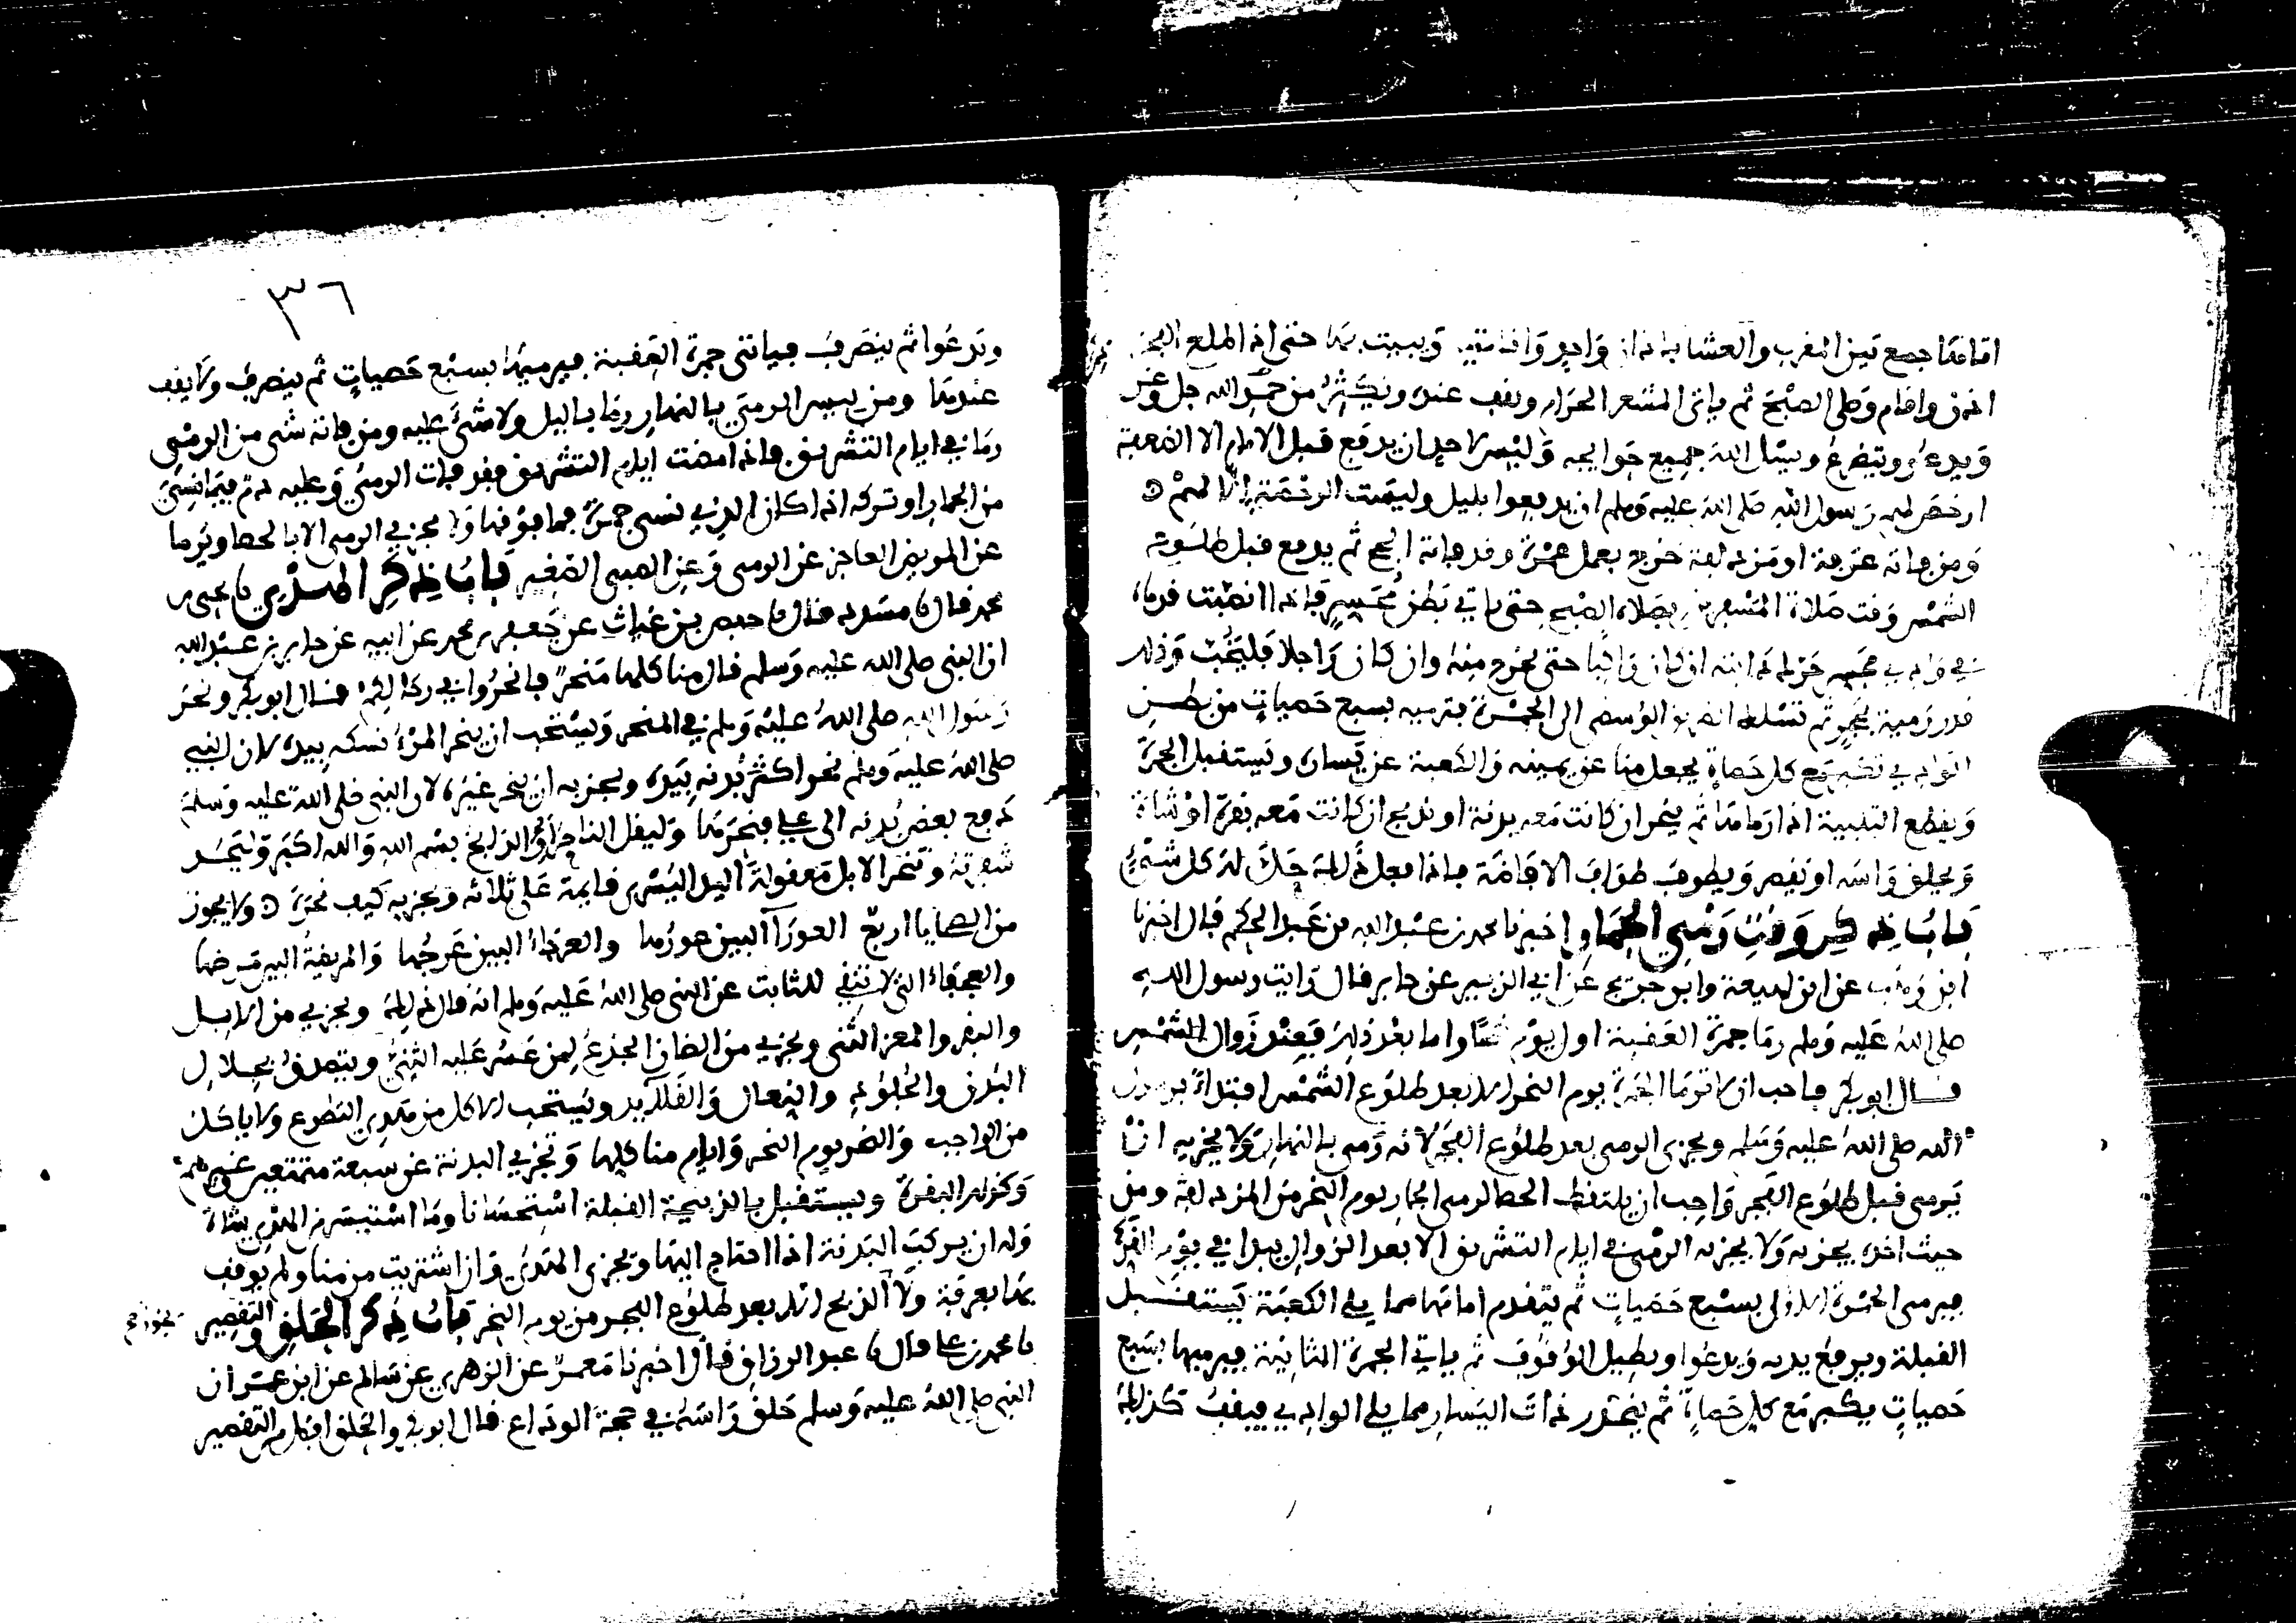 اقامة جمع بين المغرب والعشا باذان واحد واقامتين ويبيت بها حتى اذا طلع الفجر
اذن واقام وصلى الصبح ثم ياتي المشعر الحرام ويقف عنده ويكثر من حمد الله جل وعز
ويدعو ويتضرع ويسل الله جميع حوايجه وليس لاحد ان يدفع قبل الامام الا الضعفة
ارخص لهم رسول الله صلى الله عليه وسلم ان يدفعوا بليل وليست الرخصة الا لهم
ومن فاته عرفة او مزدلفة خرج بعمل عمرة وقد فاته الحج ثم يدفع قبل طلوع
الشمس وقت صلاة المسفرين بصلاة الصبح حتى ياتي بطن محسر فاذا انصبت قدماه
في وادي محسر حرك دابته ان كان راكبا حتى يخرج منه وان كان راجلا فليخب وذلك
قدر رمية بحجر ثم تسلك الطريق الوسطى الى الجمرة فترميه بسبع حصيات من بطن
الوادي تكبر مع كل حصاة يجعل منا عن يمينه والكعبة عن يساره ويستقبل الجمرة
ويقطع التلبية اذا رماها ثم ينحر ان كانت معه بدنة او يذبح ان كانت معه بقرة او شاة
ويحلق راسه او يقصر ويطوف طواف الافاضة فاذا فعل ذلك حل له كل شيء
باب ذكر وقت رمي الجمار اخبرنا محمد بن عبد الله بن عبد الحكم قال اخبرنا
ابن وهب عن ابن لهيعة وابن جريج عن ابي الزبير عن جابر قال رايت رسول الله
صلى الله عليه وسلم رما جمرة العقبة اول يوم ضحا واما بعد ذلك فعند زوال الشمس
قال ابو بكر فاحب ان لا ترما الجمرة يوم النحر الا بعد طلوع الشمس اقتداء برسول
الله صلى الله عليه وسلم ويجزي الرمي بعد طلوع الفجر لانه رمى بالنهار ولا يجزيه ان
يرمي قبل طلوع الفجر واحب ان يلتقط الحصا لرمي الجمار يوم النحر من المزدلفة ومن
حيث اخذه يجزيه ولا يجزيه الرمي في ايام التشريق الا بعد الزوال يبدا في يوم القر
فيرمي الجمرة الاولى بسبع حصيات ثم يتقدم امامها مما يلي الكعبة يستقبل
القبلة ويرفع يديه ويدعوا ويطيل الوقوف ثم ياتي الجمرة الثانية فيرميها بسبع
حصيات يكبر مع كل حصاة ثم ينحدر ذات اليسار مما يلي الوادي فيقف كذلك
٣٦
ويدعوا ثم ينصرف فياتي جمرة العقبة فيرميها بسبع حصيات ثم ينصرف ولا يقف
عندها ومن نسي الرمي بالنهار رما بالليل ولا شيء عليه ومن فاته شي من الرمي
رما في ايام التشريق فاذا مضت ايام التشريق فقد فات الرمي وعليه دم فيما نسي
من الجمار او تركه اذا كان الذي نسي جمرة فما فوقها ولا يجزي الرمي الا بالحصا ويرما
عن المريض العاجز عن الرمي وعن الصبي الصغير باب ذكر الهدي نا يحيى بن
محمد قال نا مسدد قال نا حفص بن غياث عن جعفر بن محمد عن ابيه عن جابر بن عبد الله
ان النبي صلى الله عليه وسلم قال منا كلها منحر فانحروا في رحالكم قال ابو بكر ونحر
رسول الله صلى الله عليه وسلم في المنحر ويستحب ان ينحر المرء نسكه بيده لان النبي
صلى الله عليه وسلم نحر اكثر بدنه بيده ويجزيه ان ينحر غيره لان النبي صلى الله عليه وسلم
دفع بعض بدنه الى علي فنحرها وليقل الناحر او الذابح بسم الله والله اكبر وليحد
شفرته وتنحر الابل معقولة اليد اليسرى قايمة على ثلاثة ويجزيه كيف نحر ولا يجوز
من الضحايا اربع العورا البين عورها والعرجاء البين عرجها والمريضة البين مرضها
والعجفاء التي لا تنقي للثابت عن النبي صلى الله عليه وسلم انه قال ذلك ويجزي من الابل
والبقر والمعز الثني ويجزي من الضان الجذع لمن عسر عليه الثني ويتصدق بجلال
البدن والجلود والنعال والقلايد ويستحب الاكل من هدي التطوع ولا ياكل
من الواجب والنحر يوم النحر وايام منا كلها وتجزي البدنة عن سبعة متمتعين عن هديهم
وكذلك البقرة ويستقبل بالذبيحة القبلة استحسانا وما استيسر من الهدي شاة
وله ان يركب البدنة اذا احتاج اليها ويجزي الهدي وان اشتريت من منا ولم يوقف
بها بعرفة ولا الذبح الا بعد طلوع الفجر من يوم النحر باب ذكر الحلق والتقصير
نا محمد بن علي قال نا عبد الرزاق قال اخبرنا معمر عن الزهري عن سالم عن ابن عمر ان
النبي صلى الله عليه وسلم حلق راسه في حجة الوداع قال ابو بكر والحلق افضل من التقصير